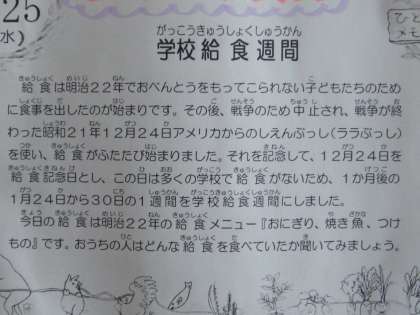 25
(水)
ひと
メモ
がっこうきゅうしょくしゅうかん
学校給食週間
給食は明治22年でおべんとうをもってこられない子どもたちのため
に食事を出したのが始まりです。その後、戦争のため中止され、戦争が終
わった昭和21年12月24日アメリカからのしえんぶっし(ララぶっし)
を使い、給食がふたたび始まりました。それを記念して、12月24日を
給食記念日とし、この日は多くの学校で給食がないため、1か月後の
1月24日から30日の1週間を学校給食週間にしました。
今日の給食は明治22年の給食メニュー『おにぎり、焼き魚、つけ
もの』です。おうちの人はどんな給食を食べていたか聞いてみましょう。